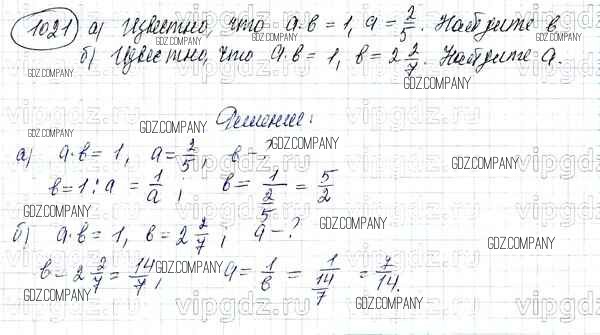 1021 а) Известно, что a·b = 1, a = 2/5. Найдите b
б) Известно, что a·b = 1, b = 2 2/7. Найдите a.
Решение:
а) a·b = 1, a = 2/5, b = ?
b = 1 : a = 1/a; b = 1/(2/5) = 5/2
б) a·b = 1, b = 2 2/7; a - ?
b = 2 2/7 = 14/7; a = 1/b = 1/(14/7) = 7/14.
GDZ.COMPANY
GDZ.COMPANY
GDZ.COMPANY
GDZ.COMPANY
GDZ.COMPANY
GDZ.COMPANY
GDZ.COMPANY
GDZ.COMPANY
GDZ.COMPANY
GDZ.COMPANY
GDZ.COMPANY
GDZ.COMPANY
vipgdz.ru